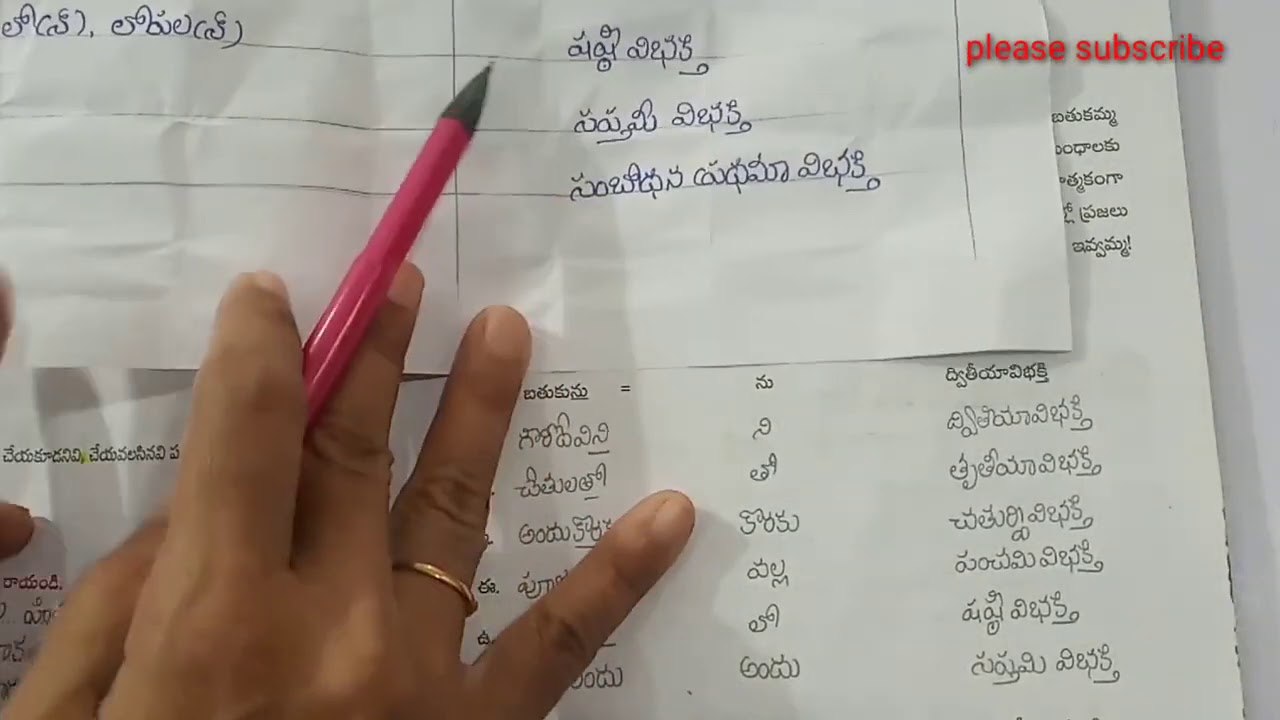 లో(న్), లోపల(న్)
షష్ఠీ విభక్తి
please subscribe
సప్తమీ విభక్తి
సంబోధన ప్రథమా విభక్తి
బతుకమ్మ
ప్రజలు
ఇవ్వమ్మ!
బతుకును = ను ద్వితీయావిభక్తి
ని ద్వితీయావిభక్తి
చేయకూడనివి, చేయవలసినవి ప
చేతులతో తో తృతీయావిభక్తి
కొరకు చతుర్థివిభక్తి
రాయండి.
ఈ. వల్ల పంచమి విభక్తి
ఉ. లో షష్ఠీ విభక్తి
అందు సప్తమి విభక్తి